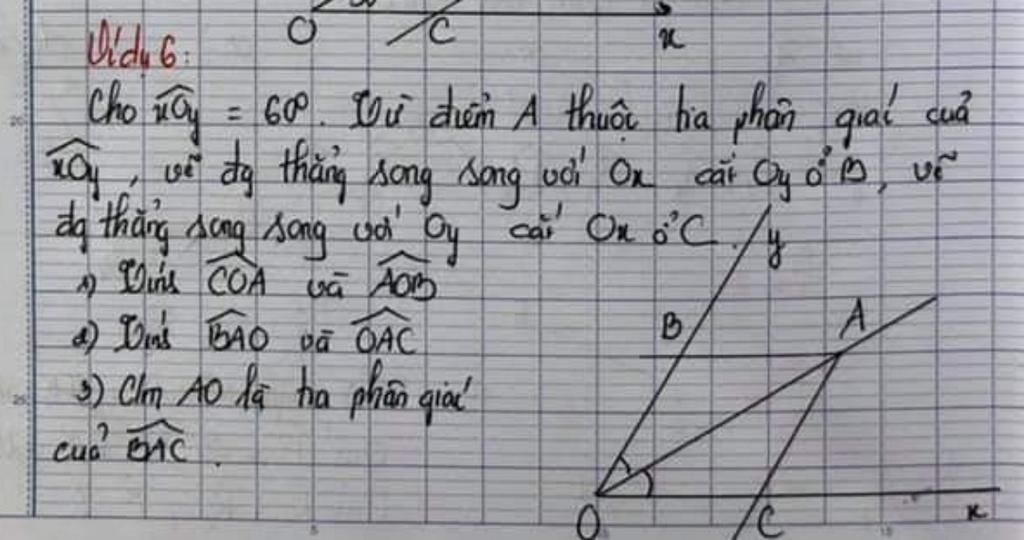 O C x
Ví dụ 6:
Cho xOy = 60°. Từ điểm A thuộc tia phân giác của
xOy, vẽ đg thẳng song song với Ox cắt Oy ở B, vẽ
đg thẳng song song với Oy cắt Ox ở C.
y
1) Tính COA và AOB
2) Tính BAO và OAC
B A
3) Cm AO là tia phân giác
của BAC.
O C x